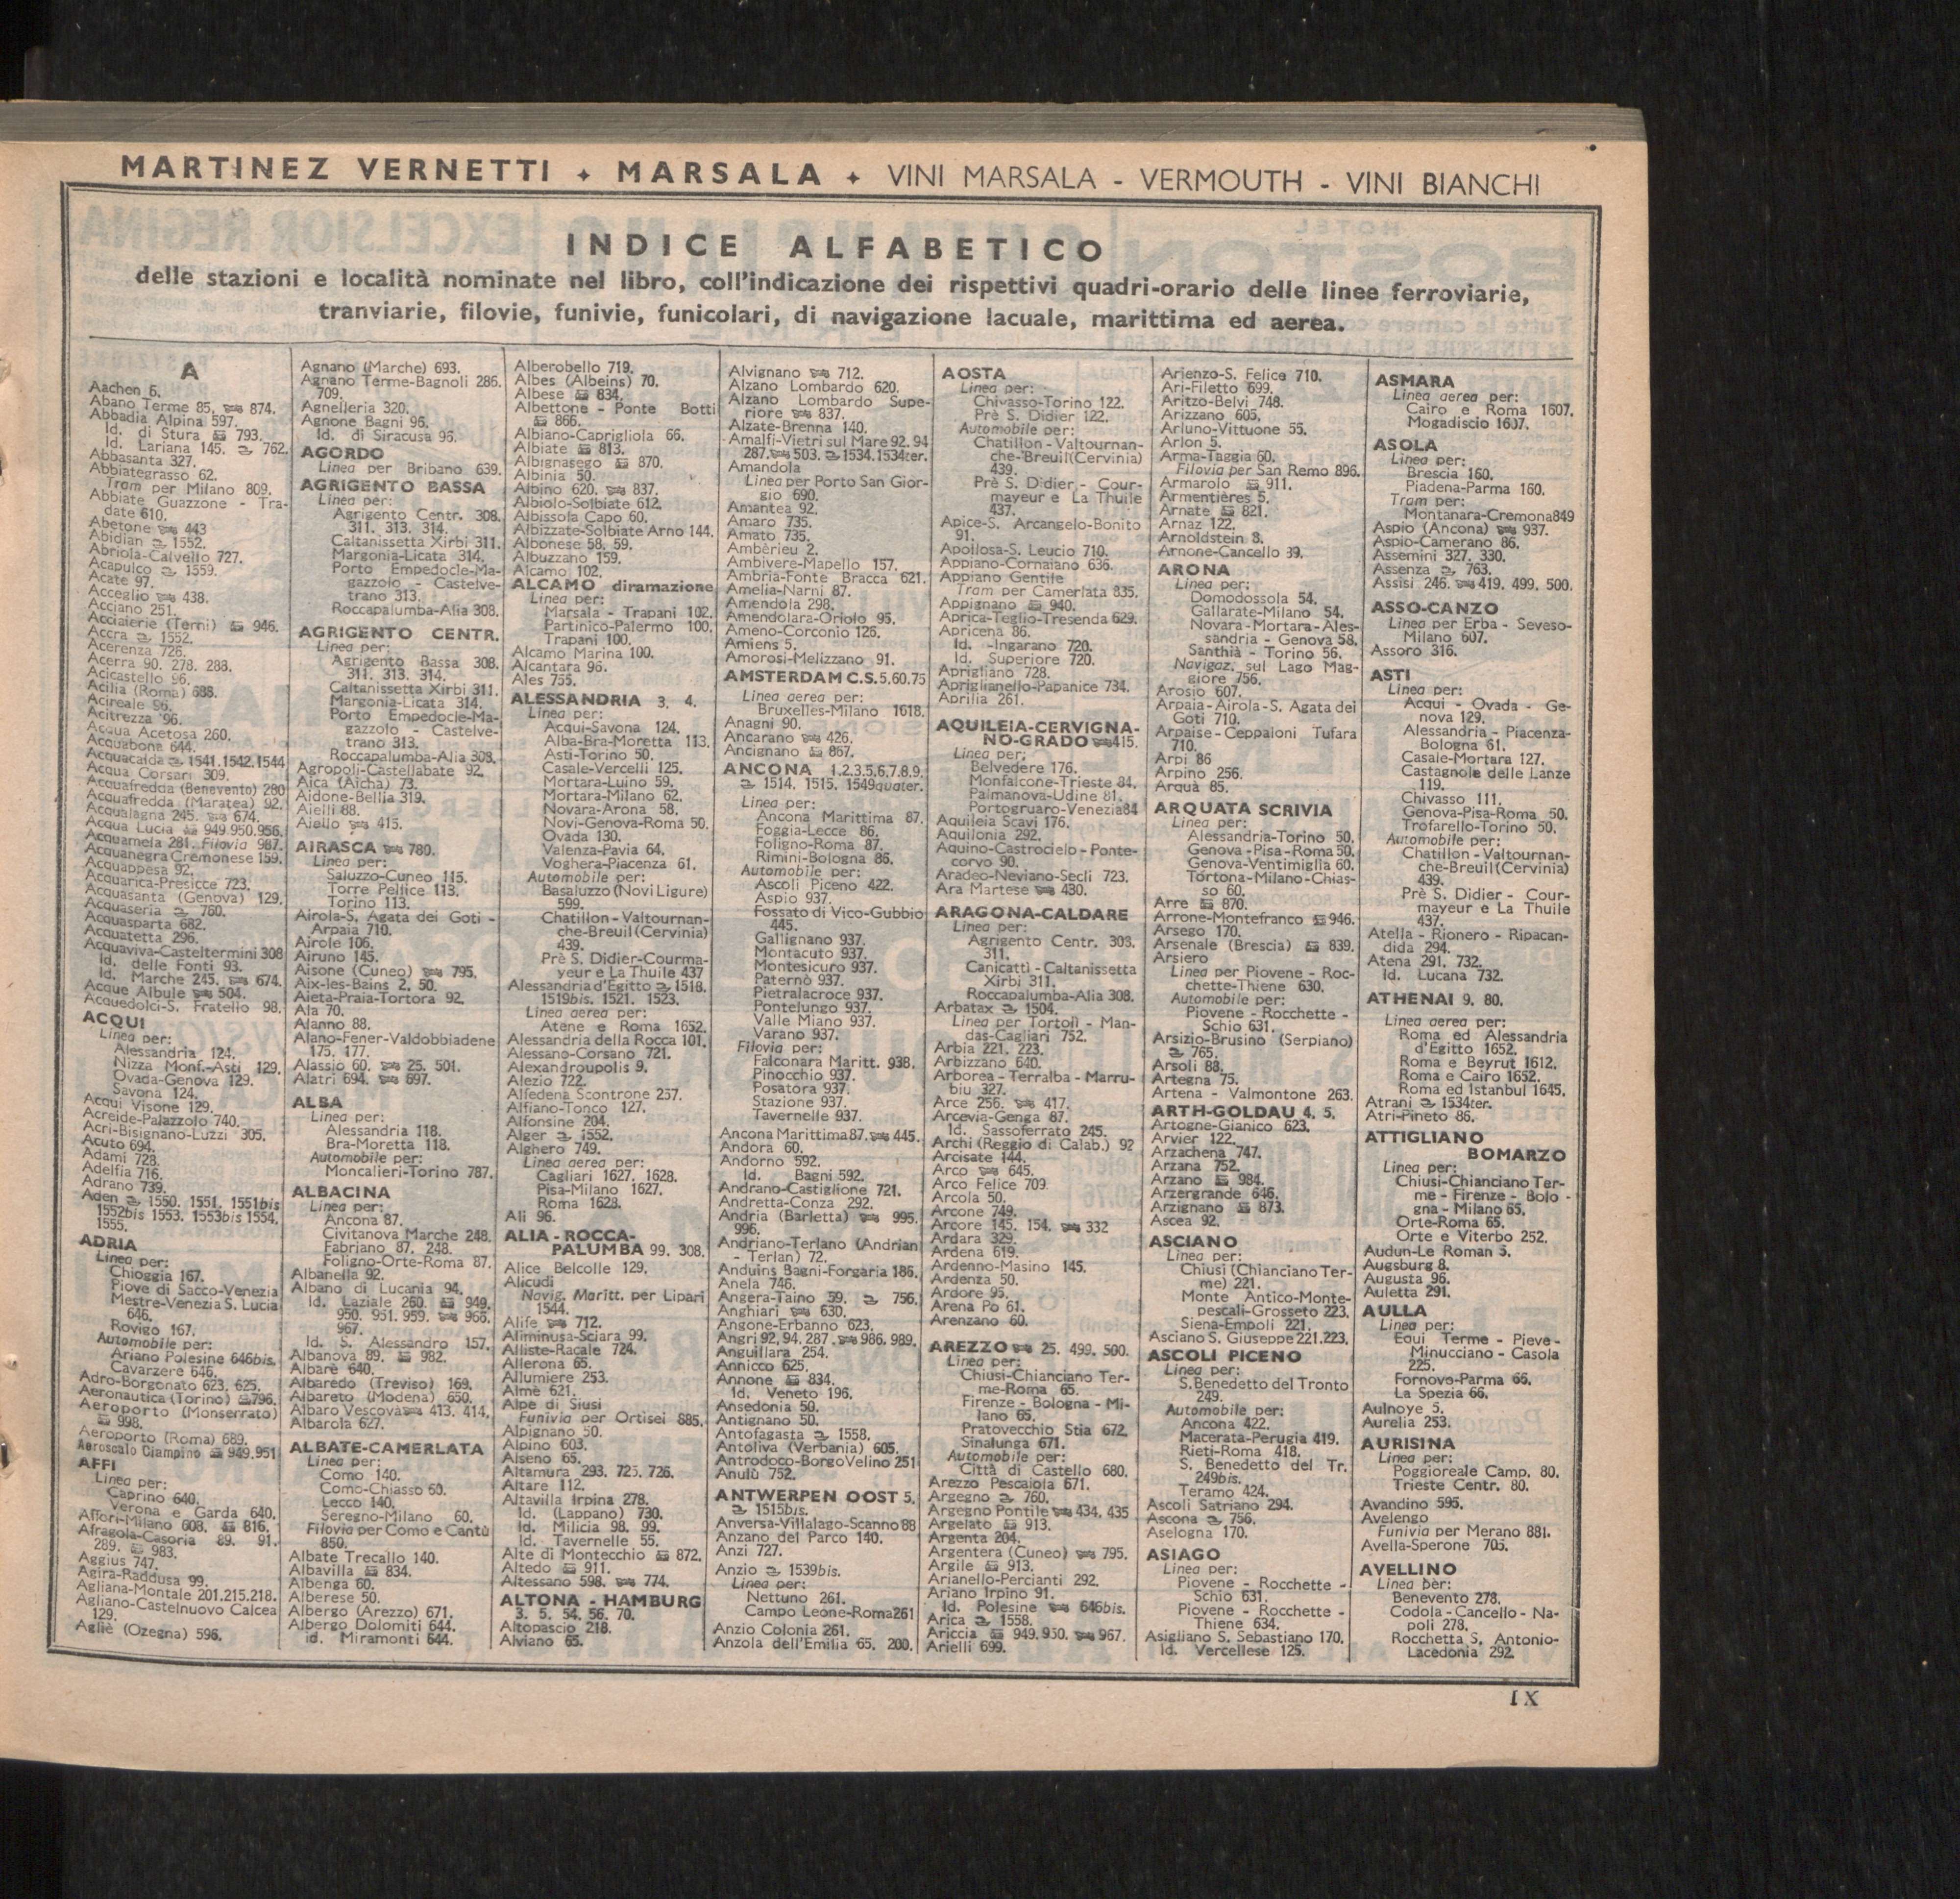 MARTINEZ VERNETTI ✦ MARSALA ✦ VINI MARSALA - VERMOUTH - VINI BIANCHI
INDICE ALFABETICO
delle stazioni e località nominate nel libro, coll'indicazione dei rispettivi quadri-orario delle linee ferroviarie,
tranviarie, filovie, funivie, funicolari, di navigazione lacuale, marittima ed aerea.
A
Aachen 6.
Abano Terme 85. 874.
Abbadia Alpina 597.
Id. di Stura 793.
Id. Lariana 145. 762.
Abbasanta 327.
Abbiategrasso 62.
Tram per Milano 809.
Abbiate Guazzone - Tra-
date 610.
Abetone 443
Abidian 1552.
Abriola-Calvello 727.
Acapulco 1559.
Acate 97.
Acceglio 438.
Acciano 251.
Acciaierie (Terni) 946.
Accra 1552.
Acerenza 726.
Acerra 90. 278. 288.
Acicastello 96.
Acilia (Roma) 688.
Acireale 96.
Acitrezza 96.
Acqua Acetosa 260.
Acquabona 644.
Acquacalda 1541.1542.1544
Acqua Corsari 309.
Acquafredda (Benevento) 280
Acquafredda (Maratea) 92.
Acqualagna 245. 674.
Acqua Lucia 949.950.956.
Acquamela 281. Filovia 987.
Acquanegra Cremonese 159.
Acquappesa 92.
Acquarica-Presicce 723.
Acquasanta (Genova) 129.
Acquaseria 760.
Acquasparta 682.
Acquatetta 296.
Acquaviva-Casteltermini 308
Id. delle Fonti 93.
Id. Marche 245. 674.
Acque Albule 504.
Acquedolci-S. Fratello 98.
ACQUI
Linea per:
Alessandria 124.
Nizza Monf.-Asti 129.
Ovada-Genova 129.
Savona 124.
Acqui Visone 129.
Acreide-Palazzolo 740.
Acri-Bisignano-Luzzi 305.
Acuto 694.
Adami 728.
Adelfia 716.
Adrano 739.
Aden 1550. 1551. 1551bis
1552bis 1553. 1553bis 1554.
1555.
ADRIA
Linea per:
Chioggia 167.
Piove di Sacco-Venezia
Mestre-Venezia S. Lucia
646.
Rovigo 167.
Automobile per:
Ariano Polesine 646bis.
Cavarzere 646.
Adro-Borgonato 623. 625.
Aeronautica (Torino) 796.
Aeroporto (Monserrato)
998.
Aeroporto (Roma) 689.
Aeroscalo Ciampino 949.951
AFFI
Linea per:
Caprino 640.
Verona e Garda 640.
Affori-Milano 608. 816.
Afragola-Casoria 89. 91.
289. 983.
Aggius 747.
Agira-Raddusa 99.
Agliana-Montale 201.215.218.
Agliano-Castelnuovo Calcea
129.
Agliè (Ozegna) 596.
Agnano (Marche) 693.
Agnano Terme-Bagnoli 286.
709.
Agnelleria 320.
Agnone Bagni 96.
Id. di Siracusa 96.
AGORDO
Linea per Bribano 639.
AGRIGENTO BASSA
Linea per:
Agrigento Centr. 308.
311. 313. 314.
Caltanissetta Xirbi 311.
Margonia-Licata 314.
Porto Empedocle-Ma-
gazzolo - Castelve-
trano 313.
Roccapalumba-Alia 308.
AGRIGENTO CENTR.
Linea per:
Agrigento Bassa 308.
311. 313. 314.
Caltanissetta Xirbi 311.
Margonia-Licata 314.
Porto Empedocle-Ma-
gazzolo - Castelve-
trano 313.
Roccapalumba-Alia 308.
Agropoli-Castellabate 92.
Aica (Aicha) 73.
Aidone-Bellia 319.
Aielli 88.
Aiello 415.
AIRASCA 780.
Linea per:
Saluzzo-Cuneo 115.
Torre Pellice 113.
Torino 113.
Airola-S. Agata dei Goti -
Arpaia 710.
Airole 106.
Airuno 145.
Aisone (Cuneo) 795.
Aix-les-Bains 2. 50.
Aieta-Praia-Tortora 92.
Ala 70.
Alanno 88.
Alano-Fener-Valdobbiadene
175. 177.
Alassio 60. 25. 501.
Alatri 694. 697.
ALBA
Linea per:
Alessandria 118.
Bra-Moretta 118.
Automobile per:
Moncalieri-Torino 787.
ALBACINA
Linea per:
Ancona 87.
Civitanova Marche 248.
Fabriano 87. 248.
Foligno-Orte-Roma 87.
Albanella 92.
Albano di Lucania 94.
Id. Laziale 260. 949.
950. 951. 959. 966.
967.
Id. S. Alessandro 157.
Albanova 89. 982.
Albare 640.
Albaredo (Treviso) 169.
Albareto (Modena) 650.
Albaro Vescova 413. 414.
Albarola 627.
ALBATE-CAMERLATA
Linea per:
Como 140.
Como-Chiasso 60.
Lecco 140.
Seregno-Milano 60.
Filovia per Como e Cantù
850.
Albate Trecallo 140.
Albavilla 834.
Albenga 60.
Alberese 50.
Albergo (Arezzo) 671.
Albergo Dolomiti 644.
id. Miramonti 644.
Alberobello 719.
Albes (Albeins) 70.
Albese 834.
Albettone - Ponte Botti
866.
Albiano-Caprigliola 66.
Albiate 813.
Albignasego 870.
Albinia 50.
Albino 620. 837.
Albiolo-Solbiate 612.
Albissola Capo 60.
Albizzate-Solbiate Arno 144.
Albonese 58. 59.
Albuzzano 159.
Alcamo 102.
ALCAMO diramazione
Linea per:
Marsala - Trapani 102.
Partinico-Palermo 100.
Trapani 100.
Alcamo Marina 100.
Alcantara 96.
Ales 755.
ALESSANDRIA 3. 4.
Linea per:
Acqui-Savona 124.
Alba-Bra-Moretta 113.
Asti-Torino 50.
Casale-Vercelli 125.
Mortara-Luino 59.
Mortara-Milano 62.
Novara-Arona 58.
Novi-Genova-Roma 50.
Ovada 130.
Valenza-Pavia 64.
Voghera-Piacenza 61.
Automobile per:
Basaluzzo (Novi Ligure)
599.
Chatillon - Valtournan-
che-Breuil (Cervinia)
439.
Prè S. Didier-Courma-
yeur e La Thuile 437
Alessandria d'Egitto 1518.
1519bis. 1521. 1523.
Linea aerea per:
Atene e Roma 1652.
Alessandria della Rocca 101.
Alessano-Corsano 721.
Alexandroupolis 9.
Alezio 722.
Alfedena Scontrone 257.
Alfiano-Tonco 127.
Alfonsine 204.
Alger 1552.
Alghero 749.
Linea aerea per:
Cagliari 1627. 1628.
Pisa-Milano 1627.
Roma 1628.
Ali 96.
ALIA - ROCCA-
PALUMBA 99. 308.
Alice Belcolle 129.
Alicudi
Navig. Maritt. per Lipari
1544.
Alife 712.
Aliminusa-Sciara 99.
Alliste-Racale 724.
Allerona 65.
Allumiere 253.
Almè 621.
Alpe di Siusi
Funivia per Ortisei 885.
Alpignano 50.
Alpino 603.
Alseno 65.
Altamura 293. 725. 726.
Altare 112.
Altavilla Irpina 278.
Id. (Lappano) 730.
Id. Milicia 98. 99.
Id. Tavernelle 55.
Alte di Montecchio 872.
Altedo 911.
Altessano 598. 774.
ALTONA - HAMBURG
3. 5. 54. 56. 70.
Altopascio 218.
Alviano 65.
Alvignano 712.
Alzano Lombardo 620.
Alzano Lombardo Supe-
riore 837.
Alzate-Brenna 140.
Amalfi-Vietri sul Mare 92. 94
287. 503. 1534.1534ter.
Amandola
Linea per Porto San Gior-
gio 690.
Amantea 92.
Amaro 735.
Amato 735.
Ambèrieu 2.
Ambivere-Mapello 157.
Ambria-Fonte Bracca 621.
Amelia-Narni 87.
Amendola 298.
Amendolara-Oriolo 95.
Ameno-Corconio 126.
Amiens 5.
Amorosi-Melizzano 91.
AMSTERDAM C.S. 5.60.75
Linea aerea per:
Bruxelles-Milano 1618.
Anagni 90.
Ancarano 426.
Ancignano 867.
ANCONA 1.2.3.5.6.7.8.9.
1514. 1515. 1549quater.
Linea per:
Ancona Marittima 87.
Foggia-Lecce 86.
Foligno-Roma 87.
Rimini-Bologna 86.
Automobile per:
Ascoli Piceno 422.
Aspio 937.
Fossato di Vico-Gubbio
445.
Gallignano 937.
Montacuto 937.
Montesicuro 937.
Paternò 937.
Pietralacroce 937.
Pontelungo 937.
Valle Miano 937.
Varano 937.
Filovia per:
Falconara Maritt. 938.
Pinocchio 937.
Posatora 937.
Stazione 937.
Tavernelle 937.
Ancona Marittima 87. 445.
Andora 60.
Andorno 592.
Id. Bagni 592.
Andrano-Castiglione 721.
Andretta-Conza 292.
Andria (Barletta) 995.
996.
Andriano-Terlano (Andrian
- Terlan) 72.
Anduins Bagni-Forgaria 186.
Anela 746.
Angera-Taino 59. 756.
Anghiari 630.
Angone-Erbanno 623.
Angri 92. 94. 287. 986. 989.
Anguillara 254.
Annicco 625.
Annone 834.
Id. Veneto 196.
Ansedonia 50.
Antignano 50.
Antofagasta 1558.
Antoliva (Verbania) 605.
Antrodoco-Borgo Velino 251
Anulù 752.
ANTWERPEN OOST 5.
1515bis.
Anversa-Villalago-Scanno 88
Anzano del Parco 140.
Anzi 727.
Anzio 1539bis.
Linea per:
Nettuno 261.
Campo Leone-Roma 261
Anzio Colonia 261.
Anzola dell'Emilia 65. 200.
AOSTA
Linea per:
Chivasso-Torino 122.
Prè S. Didier 122.
Automobile per:
Chatillon - Valtournan-
che-Breuil (Cervinia)
439.
Prè S. Didier - Cour-
mayeur e La Thuile
437.
Apice-S. Arcangelo-Bonito
91.
Apollosa-S. Leucio 710.
Appiano-Cornaiano 636.
Appiano Gentile
Tram per Camerlata 835.
Appignano 940.
Aprica-Teglio-Tresenda 629.
Apricena 86.
Id. -Ingarano 720.
Id. Superiore 720.
Aprigliano 728.
Apriglianello-Papanice 734.
Aprilia 261.
AQUILEIA-CERVIGNA-
NO-GRADO 415.
Linea per:
Belvedere 176.
Monfalcone-Trieste 84.
Palmanova-Udine 81.
Portogruaro-Venezia 84
Aquileia Scavi 176.
Aquilonia 292.
Aquino-Castrocielo - Ponte-
corvo 90.
Aradeo-Neviano-Secli 723.
Ara Martese 430.
ARAGONA-CALDARE
Linea per:
Agrigento Centr. 308.
311.
Canicattì - Caltanissetta
Xirbi 311.
Roccapalumba-Alia 308.
Arbatax 1504.
Linea per Tortolì - Man-
das-Cagliari 752.
Arbia 221. 223.
Arbizzano 640.
Arborea - Terralba - Marru-
biu 327.
Arce 256. 417.
Arcevia-Genga 87.
Id. Sassoferrato 245.
Archi (Reggio di Calab.) 92
Arcisate 144.
Arco 645.
Arco Felice 709.
Arcola 50.
Arcone 749.
Arcore 145. 154. 332
Ardara 329.
Ardena 619.
Ardenno-Masino 145.
Ardenza 50.
Ardore 95.
Arena Po 61.
Arenzano 60.
AREZZO 25. 499. 500.
Linea per:
Chiusi-Chianciano Ter-
me-Roma 65.
Firenze - Bologna - Mi-
lano 65.
Pratovecchio Stia 672.
Sinalunga 671.
Automobile per:
Città di Castello 680.
Arezzo Pescaiola 671.
Argegno 760.
Argegno Pontile 434. 435
Argelato 913.
Argenta 204.
Argentera (Cuneo) 795.
Argile 913.
Arianello-Percianti 292.
Ariano Irpino 91.
Id. Polesine 646bis.
Arica 1558.
Ariccia 949.950. 967.
Arielli 699.
Arienzo-S. Felice 710.
Ari-Filetto 699.
Aritzo-Belvi 748.
Arizzano 605.
Arluno-Vittuone 55.
Arlon 5.
Arma-Taggia 60.
Filovia per San Remo 896.
Armarolo 911.
Armentières 5.
Arnate 821.
Arnaz 122.
Arnoldstein 8.
Arnone-Cancello 89.
ARONA
Linea per:
Domodossola 54.
Gallarate-Milano 54.
Novara-Mortara-Ales-
sandria - Genova 58.
Santhià - Torino 56.
Navigaz. sul Lago Mag-
giore 756.
Arosio 607.
Arpaia-Airola-S. Agata dei
Goti 710.
Arpaise - Ceppaioni Tufara
710.
Arpi 86
Arpino 256.
Arquà 85.
ARQUATA SCRIVIA
Linea per:
Alessandria-Torino 50.
Genova-Pisa-Roma 50.
Genova-Ventimiglia 60.
Tortona-Milano-Chias-
so 60.
Arre 870.
Arrone-Montefranco 946.
Arsego 170.
Arsenale (Brescia) 839.
Arsiero
Linea per Piovene - Roc-
chette-Thiene 630.
Automobile per:
Piovene - Rocchette -
Schio 631.
Arsizio-Brusino (Serpiano)
765.
Arsoli 88.
Artegna 75.
Artena - Valmontone 263.
ARTH-GOLDAU 4. 5.
Artogne-Gianico 623.
Arvier 122.
Arzachena 747.
Arzana 752.
Arzano 984.
Arzergrande 646.
Arzignano 873.
Ascea 92.
ASCIANO
Linea per:
Chiusi (Chianciano Ter-
me) 221.
Monte Antico-Monte-
pescali-Grosseto 223.
Siena-Empoli 221.
Asciano S. Giuseppe 221.223.
ASCOLI PICENO
Linea per:
S. Benedetto del Tronto
249.
Automobile per:
Ancona 422.
Macerata-Perugia 419.
Rieti-Roma 418.
S. Benedetto del Tr.
249bis.
Teramo 424.
Ascoli Satriano 294.
Ascona 756.
Aselogna 170.
ASIAGO
Linea per:
Piovene - Rocchette -
Schio 631.
Piovene - Rocchette -
Thiene 634.
Asigliano S. Sebastiano 170.
Id. Vercellese 125.
ASMARA
Linea aerea per:
Cairo e Roma 1607.
Mogadiscio 1607.
ASOLA
Linea per:
Brescia 160.
Piadena-Parma 160.
Tram per:
Montanara-Cremona 849
Aspio (Ancona) 937.
Aspio-Camerano 86.
Assemini 327. 330.
Assenza 763.
Assisi 246. 419. 499. 500.
ASSO-CANZO
Linea per Erba - Seveso-
Milano 607.
Assoro 316.
ASTI
Linea per:
Acqui - Ovada - Ge-
nova 129.
Alessandria - Piacenza-
Bologna 61.
Casale-Mortara 127.
Castagnole delle Lanze
119.
Chivasso 111.
Genova-Pisa-Roma 50.
Trofarello-Torino 50.
Automobile per:
Chatillon - Valtournan-
che-Breuil (Cervinia)
439.
Prè S. Didier - Cour-
mayeur e La Thuile
437.
Atella - Rionero - Ripacan-
dida 294.
Atena 291. 732.
Id. Lucana 732.
ATHENAI 9. 80.
Linea aerea per:
Roma ed Alessandria
d'Egitto 1652.
Roma e Beyrut 1612.
Roma e Cairo 1652.
Roma ed Istanbul 1645.
Atrani 1534ter.
Atri-Pineto 86.
ATTIGLIANO
BOMARZO
Linea per:
Chiusi-Chianciano Ter-
me - Firenze - Bolo -
gna - Milano 65.
Orte-Roma 65.
Orte e Viterbo 252.
Audun-Le Roman 3.
Augsburg 8.
Augusta 96.
Auletta 291.
AULLA
Linea per:
Equi Terme - Pieve -
Minucciano - Casola
225.
Fornovo-Parma 66.
La Spezia 66.
Aulnoye 5.
Aurelia 253.
AURISINA
Linea per:
Poggioreale Camp. 80.
Trieste Centr. 80.
Avandino 595.
Avelengo
Funivia per Merano 881.
Avella-Sperone 705.
AVELLINO
Linea per:
Benevento 278.
Codola - Cancello - Na-
poli 278.
Rocchetta S. Antonio-
Lacedonia 292.
IX